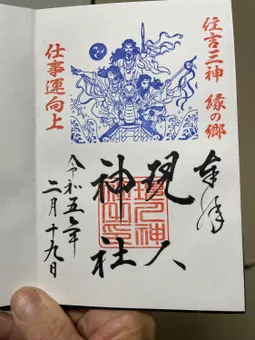 住吉三神 縁の郷
仕事運向上
奉拝
現人
神社
令和五年
二月十九日